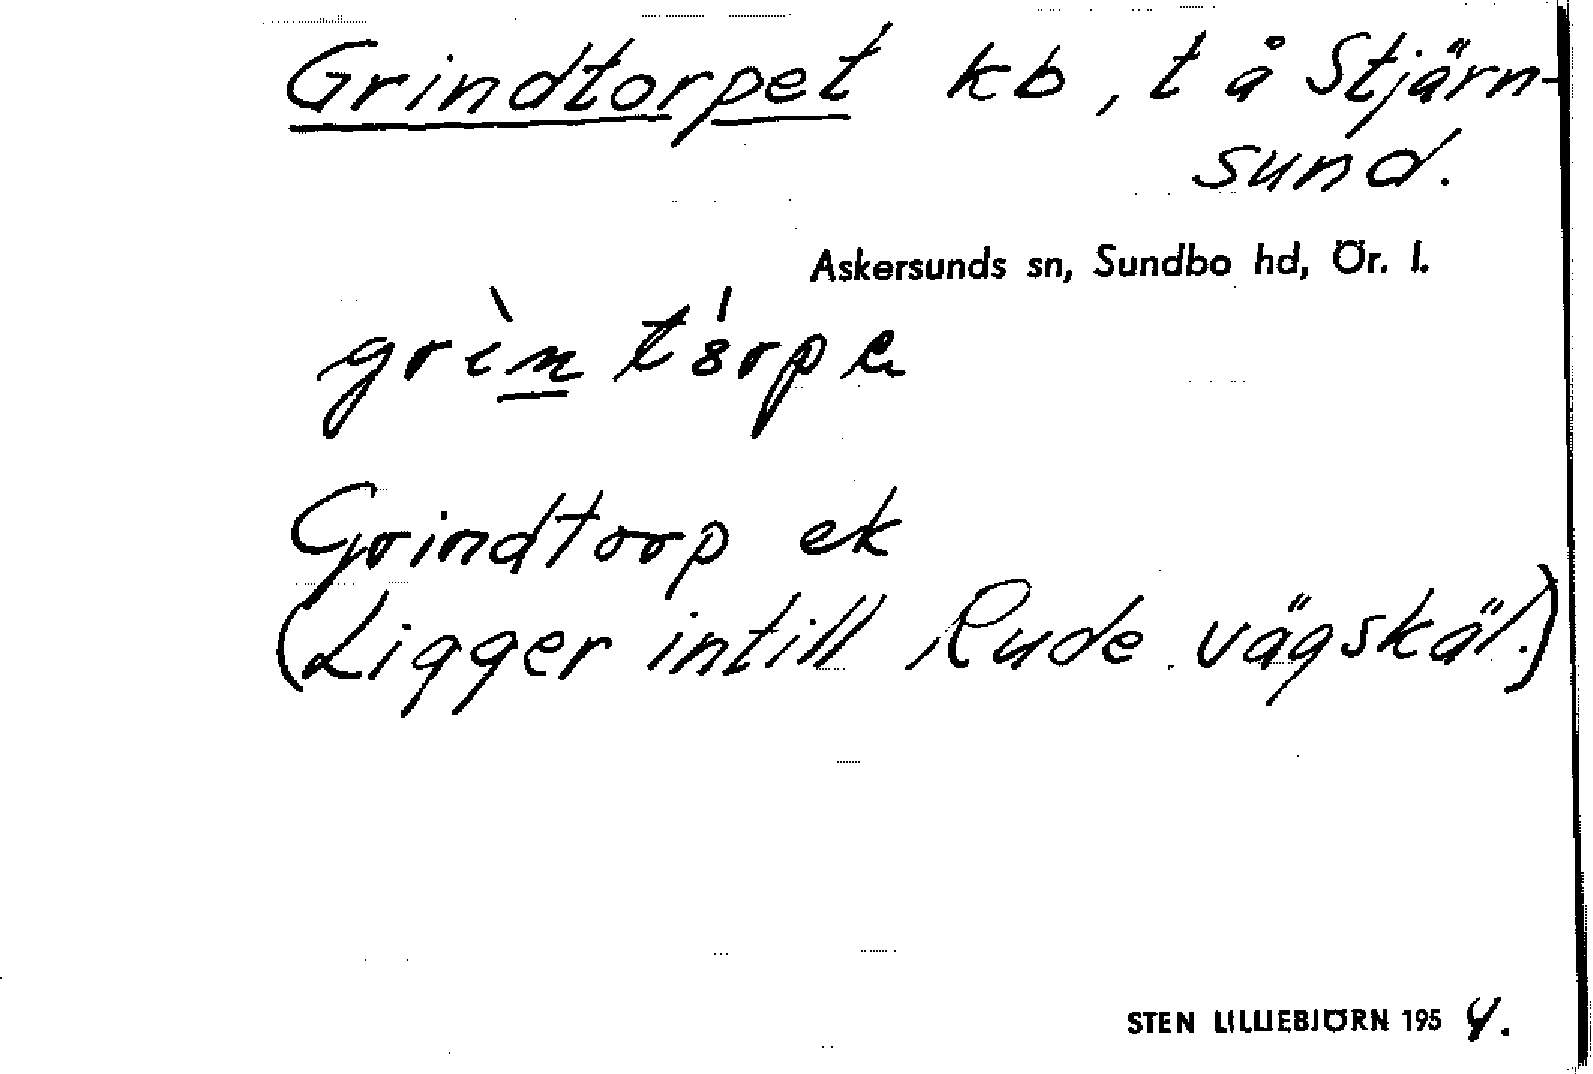 Grindtorpet kb, t å Stjärn-
sund.
Askersunds sn, Sundbo hd, Ör. l.
grìntórpe
Grindtorp ek
(Ligger intill Rude vägskäl.)
STEN LILLIEBJÖRN 1954.